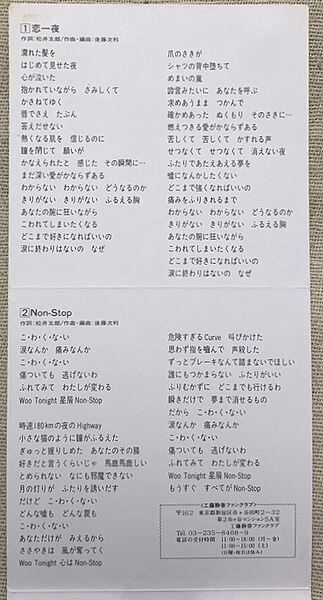 1 恋一夜
作詞：松井五郎/作曲・編曲：後藤次利
濡れた髪を
はじめて見せた夜
心が泣いた
抱かれていながら　さみしくて
かさねてゆく
唇でさえ　たぶん
答えだせない
熱くなる肌を　信じるのに
瞳を閉じて　願いが
かなえられたと　感じた　その瞬間に…
まだ深い愛がかならずある
わからない　わからない　どうなるのか
きりがない　きりがない　ふるえる胸
あなたの腕に狂いながら
こわれてしまいたくなる
どこまで好きになればいいの
涙に終わりはないの　なぜ
爪のさきが
シャツの背中堕ちて
めまいの嵐
譫言みたいに　あなたを呼ぶ
求めあうまま　つかんで
確かめあった　ぬくもり　そのさきに…
燃えつきる愛がかならずある
苦しくて　苦しくて　かすれる声
せつなくて　せつなくて　消えない夜
ふたりであたえあえる夢を
嘘になんかしたくない
どこまで強くなればいいの
痛みをふりきれるまで
わからない　わからない　どうなるのか
きりがない　きりがない　ふるえる胸
あなたの腕に狂いながら
こわれてしまいたくなる
どこまで好きになればいいの
涙に終わりはないの　なぜ
2 Non-Stop
作詞：松井五郎/作曲・編曲：後藤次利
こ・わ・く・な・い
涙なんか　痛みなんか
こ・わ・く・な・い
傷ついても　逃げないわ
ふれてみて　わたしが変わる
Woo Tonight 星屑 Non-Stop
時速180kmの夜のHighway
小さな猫のように瞳がふるえた
ぎゅっと握りしめた　あなたのその膝
好きだと言うくらいじゃ　馬鹿馬鹿しい
とめられない　なにも邪魔できない
月の灯りが　ふたりを誘いだす
だけど　こ・わ・く・な・い
どんな嘘も　どんな罠も
こ・わ・く・な・い
あなただけが　みえるから
ささやきは　風が奪ってく
Woo Tonight 心は Non-Stop
危険すぎるCurve　叫びかけた
思わず指を噛んで　声殺した
ずっとブレーキなんて踏まないでほしい
誰にもつかまらない　ふたりがいい
ふりむかずに　どこまでも行けるわ
瞬きだけで　夢まで消せるもの
だから　こ・わ・く・な・い
涙なんか　痛みなんか
こ・わ・く・な・い
傷ついても　逃げないわ
ふれてみて　わたしが変わる
Woo Tonight 星屑 Non-Stop
もうすぐ　すべてがNon-Stop
〈工藤静香ファンクラブ〉
〒162　東京都新宿区市ヶ谷田町2-32
第2市ヶ谷マンション5A室
工藤静香ファンクラブ
Tel. 03-235-8468~9
電話の受付時間　11:00~18:00（月~金）
11:00~15:00（土）
（日曜・祝日は休み）